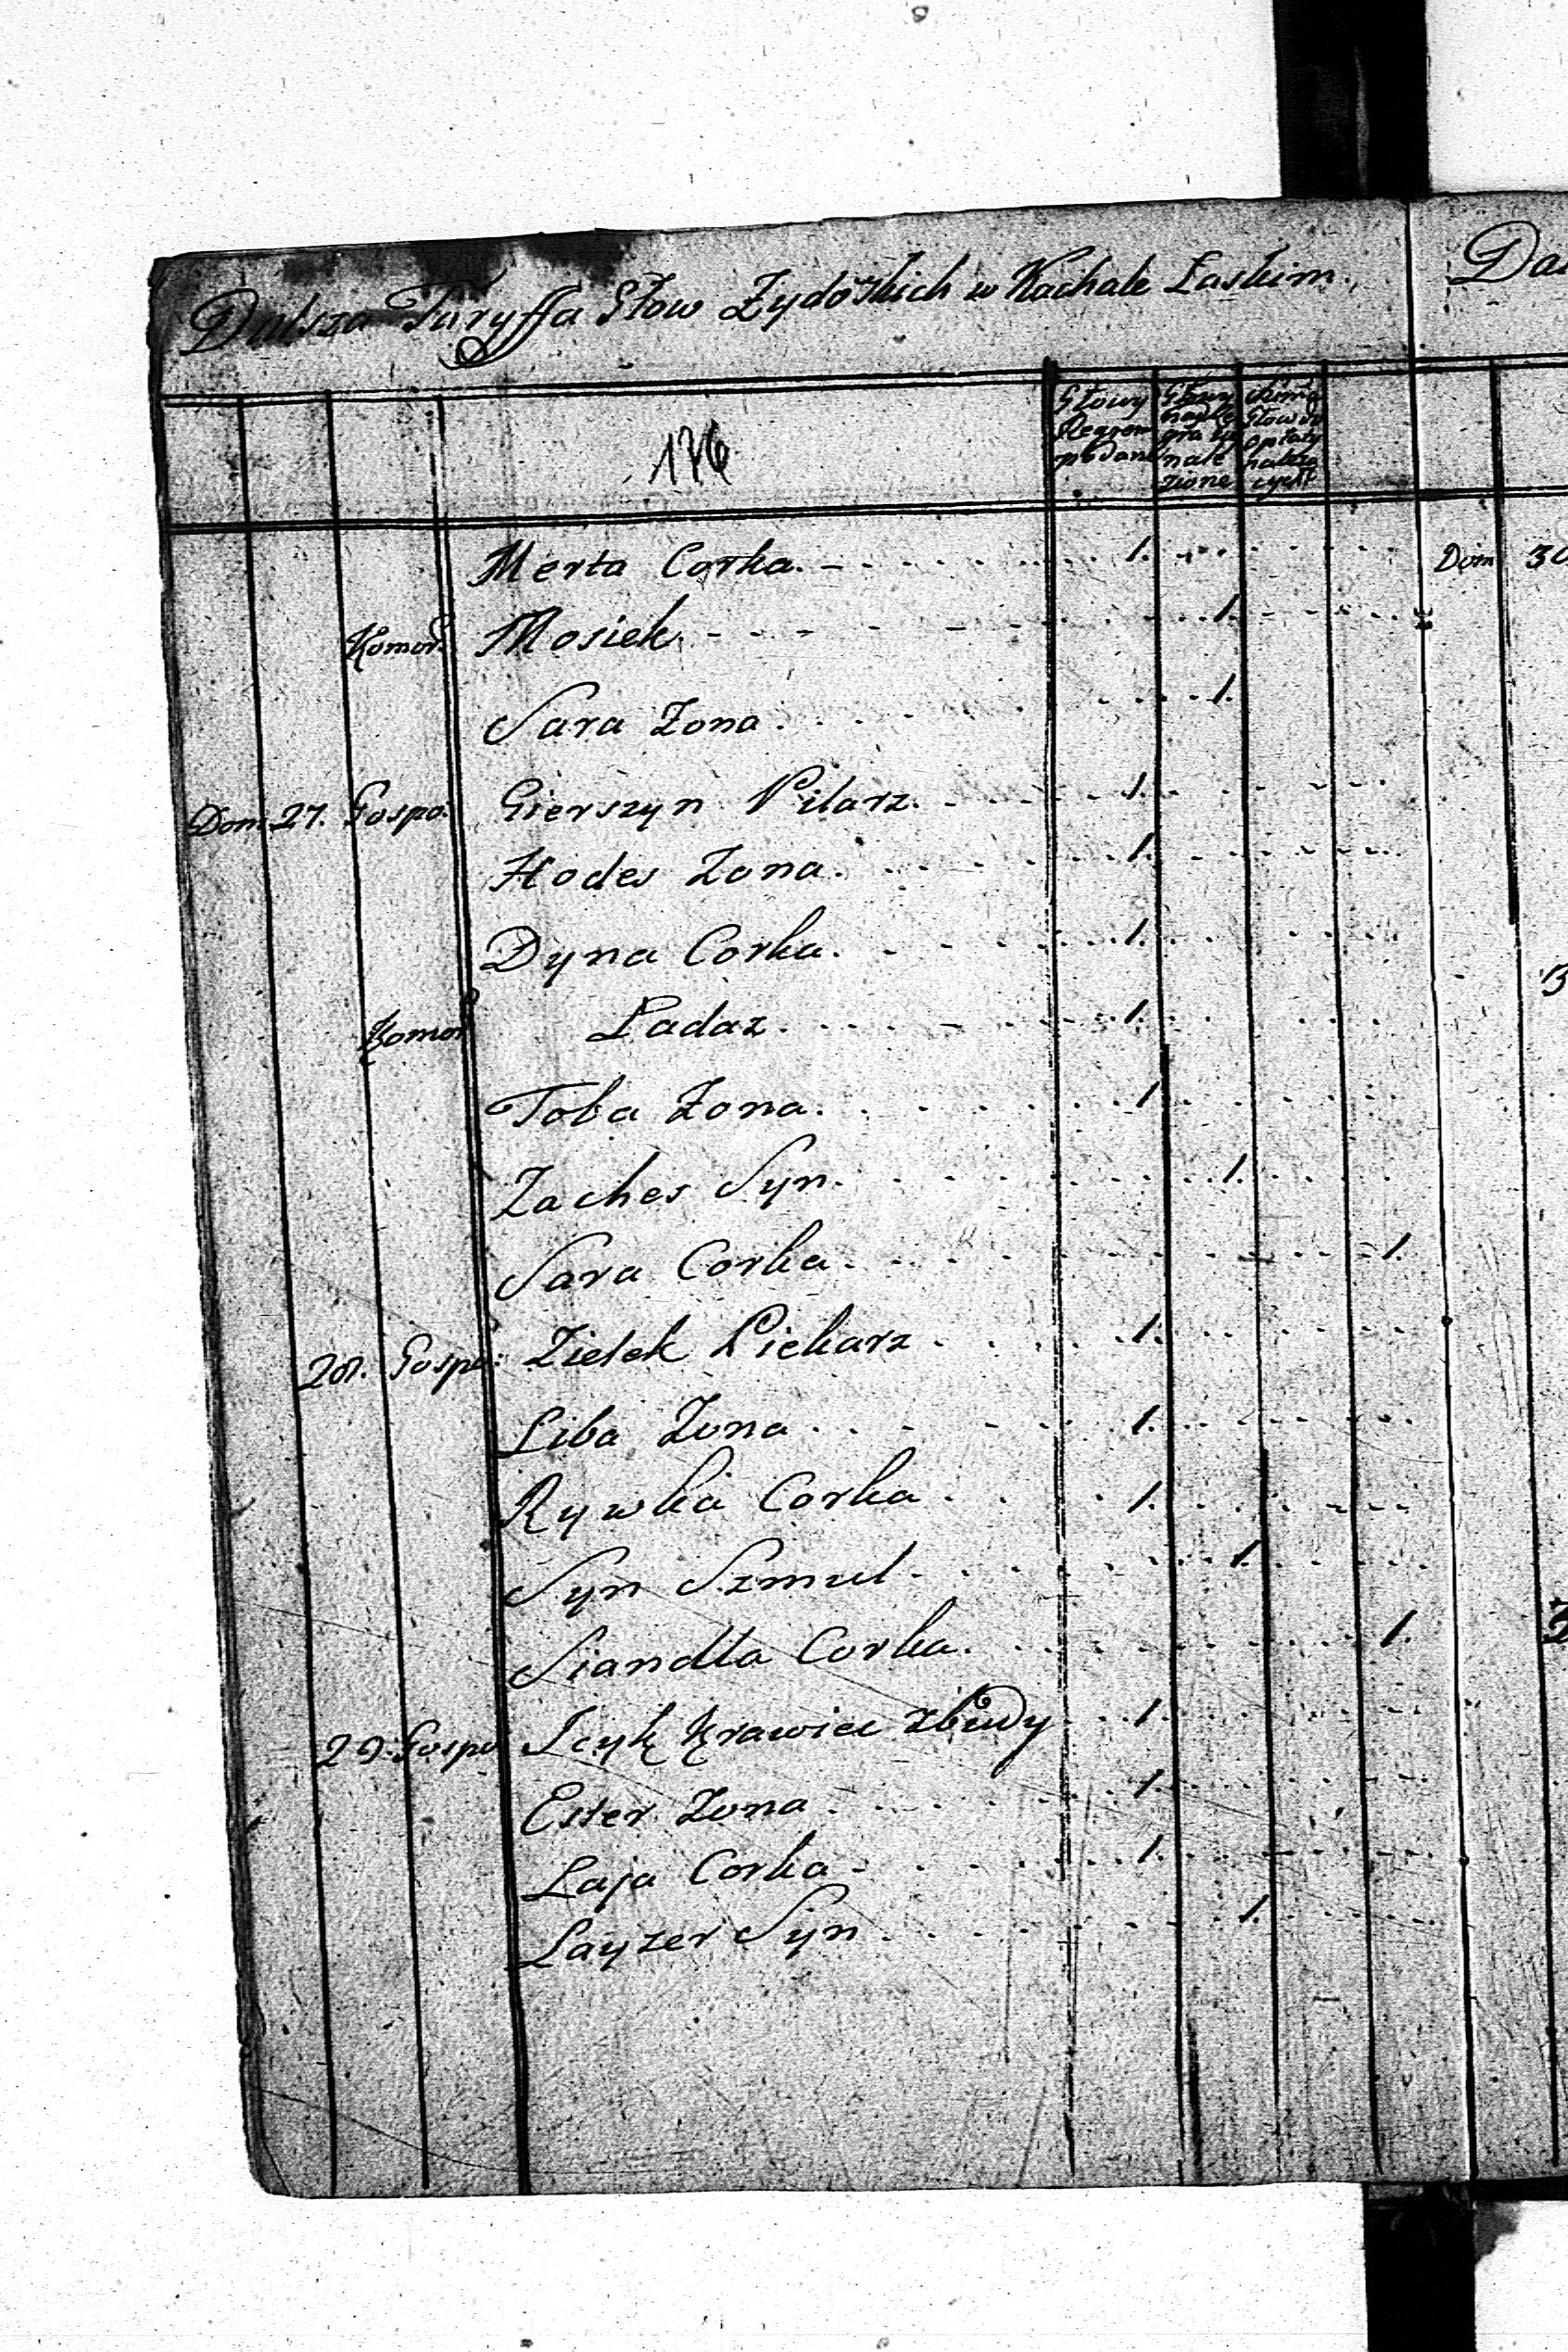 Dalsza Taryffa Głow Zydoskich w Kachale Laskim.
Da
176.
Głowy
podane
Głowy
nale
zione
Głow do
opłaty
należą
cych
Merta Corka. 1.
Dom 30
Komor. Mosiek. 1.
Sara Zona. 1.
Dom. 27. Gospo: Gierszyn Pilarz. 1.
Hodes Zona. 1.
Dyna Corka. 1.
Komor. Ladaz. 1.
Toba Zona. 1
Zaches Syn. 1.
Sara Corka. 1.
28. Gospo: Zielek Piekarz. 1.
Liba Zona. 1.
Rywka Corka. 1.
Syn Szmul. 1.
Siandla Corka. 1.
29. Gospo Icyk Krawiec zbudy 1.
Ester Zona. 1.
Laja Corka 1.
Layzer Syn. 1.